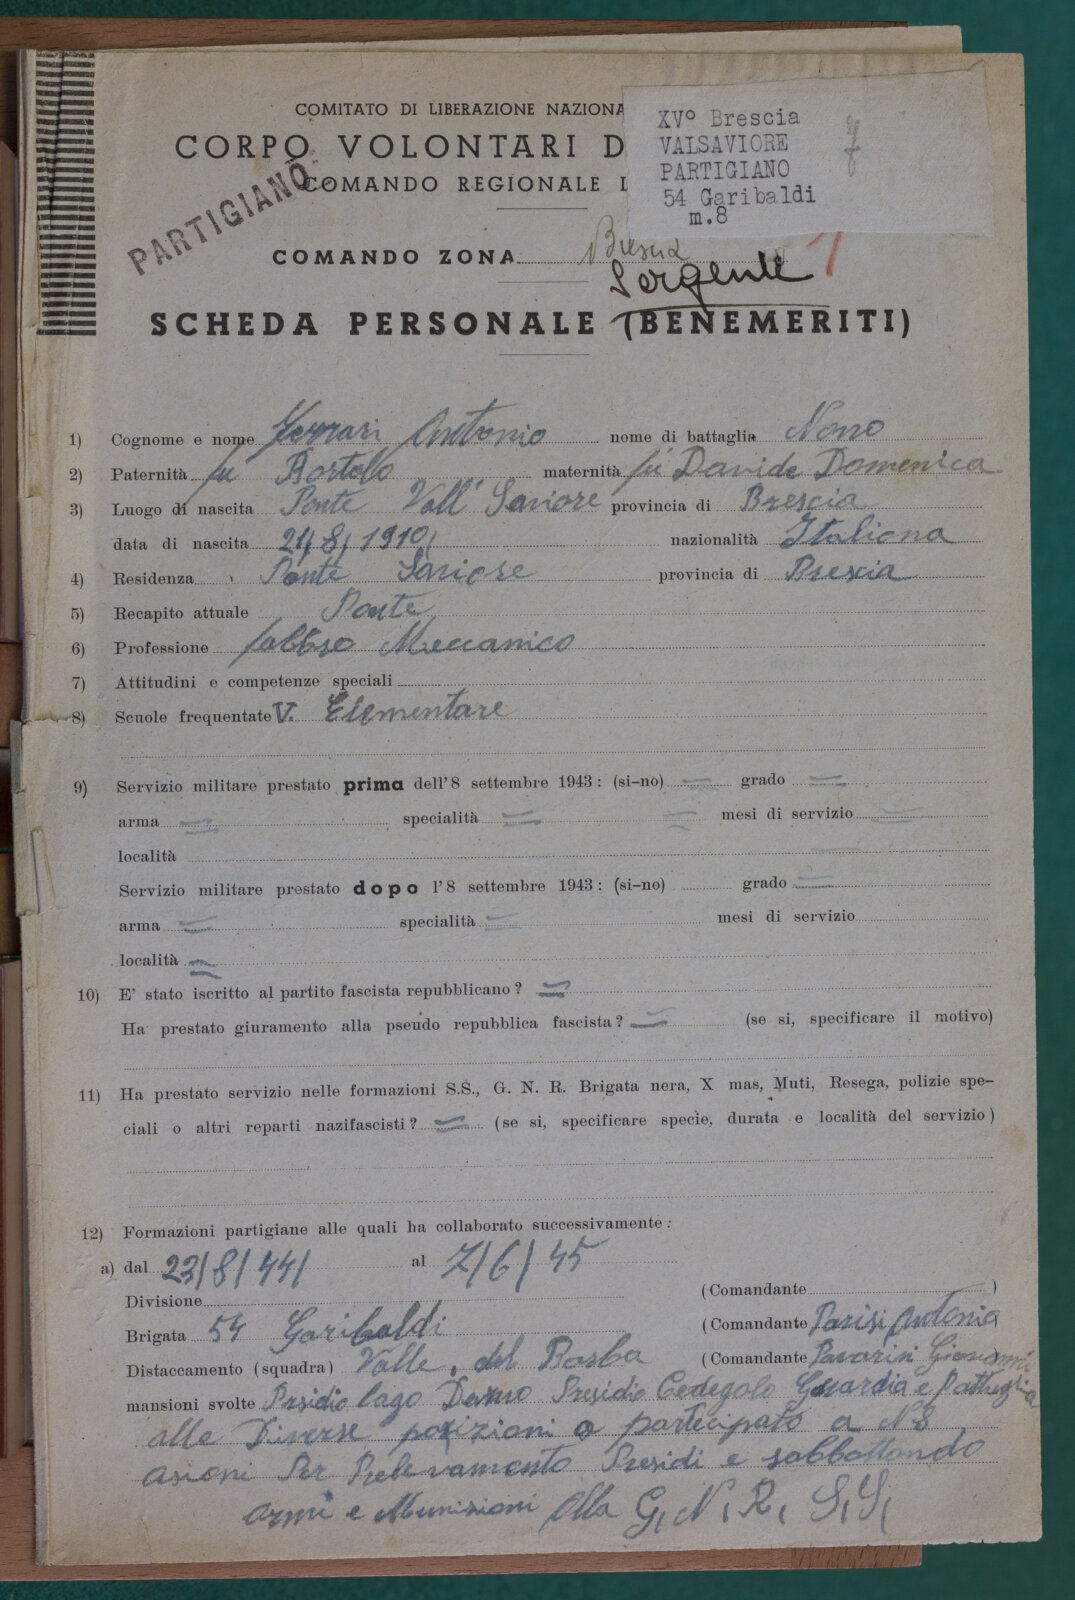 COMITATO DI LIBERAZIONE NAZIONA
CORPO VOLONTARI D
COMANDO REGIONALE L
XV° Brescia
VALSAVIORE
PARTIGIANO
54 Garibaldi
m.8
PARTIGIANO
COMANDO ZONA Brescia
Sergente 1
SCHEDA PERSONALE (BENEMERITI)
1) Cognome e nome Ferrari Antonio nome di battaglia Nono
2) Paternità fu Bortolo maternità fu Davide Domenica
3) Luogo di nascita Ponte Vall' Saviore provincia di Brescia
data di nascita 21/8/1910/ nazionalità Italiana
4) Residenza Ponte Saviore provincia di Brescia
5) Recapito attuale Ponte
6) Professione fabbro Meccanico
7) Attitudini e competenze speciali
8) Scuole frequentate V. Elementare
9) Servizio militare prestato prima dell'8 settembre 1943: (si-no) = grado =
arma = specialità = = mesi di servizio =
località
Servizio militare prestato dopo l'8 settembre 1943: (si-no) grado =
arma = specialità = mesi di servizio
località =
10) E' stato iscritto al partito fascista repubblicano? =
Ha prestato giuramento alla pseudo repubblica fascista? = (se si, specificare il motivo)
11) Ha prestato servizio nelle formazioni S.S., G. N. R. Brigata nera, X mas, Muti, Resega, polizie spe-
ciali o altri reparti nazifascisti? = (se si, specificare specie, durata e località del servizio)
12) Formazioni partigiane alle quali ha collaborato successivamente:
a) dal 23/8/44/ al 7/6/45
Divisione (Comandante )
Brigata 54 Garibaldi (Comandante Parisi Antonio
Distaccamento (squadra) Valle, del Barba (Comandante Pavarini Giovanni
mansioni svolte Presidio lago Presidio Cedegolo Guardia e Pattuglia
alle Diverse posizioni a partecipato a N 3
asioni Per Prelevamento Presidi e sabbottando
armi e Munizioni Alla G, N, R, S, S,